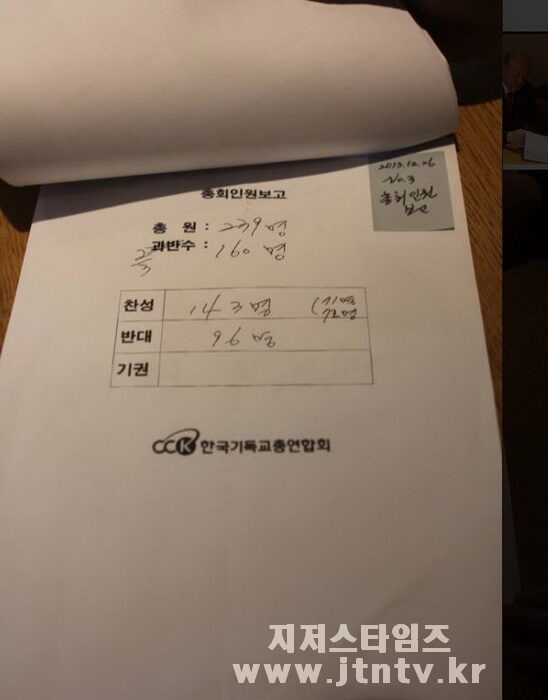 2013.12.26
No.3
총회인원
보고
총회인원보고
총 원 : 239명
2/3
과반수 : 160명
찬성 143명
반대 96명
기권
CCK 한국기독교총연합회
지저스타임즈
www.jtntv.kr